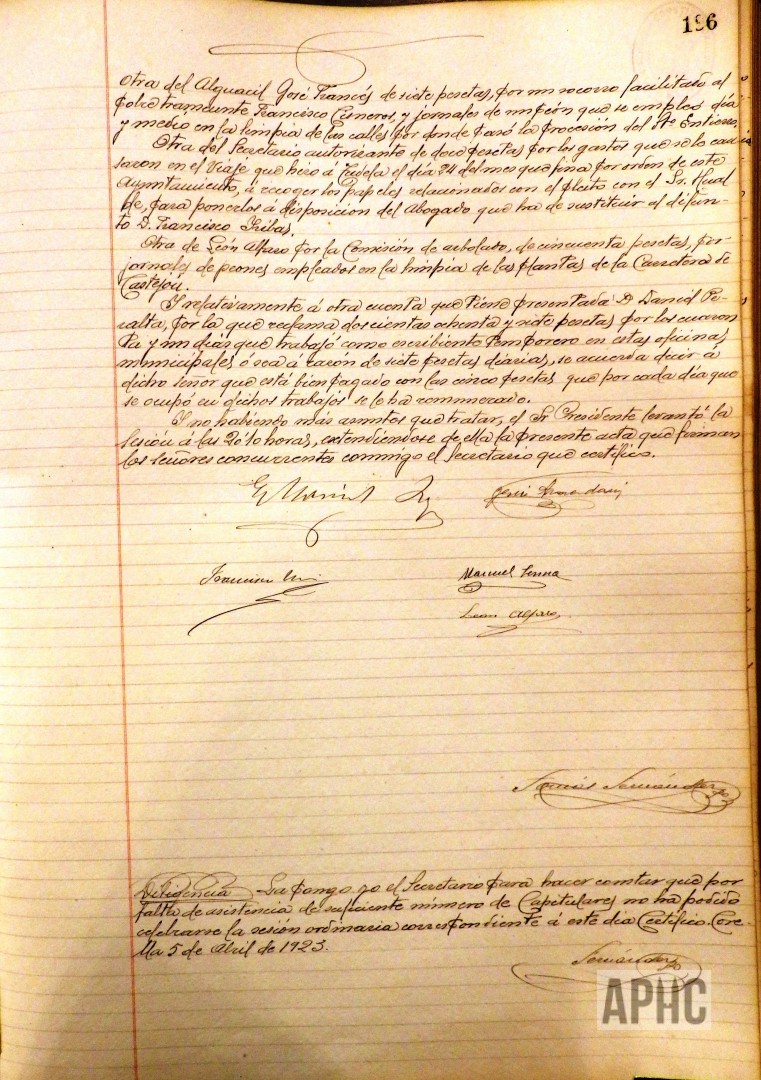 196
Otra del Alguacil José Francés de siete pesetas, por un socorro facilitado al
pobre transeunte Francisco Cisneros, y jornales de un peón que se empleó día
y medio en la limpia de las calles por donde pasó la procesión del Sto Entierro.
Otra del Secretario autorizante de doce pesetas por los gastos que se le cau
saron en el viaje que hizo á Tudela el día 24 del mes que fina por orden de este
Ayuntamiento, á recoger los papeles relacionados con el pleito con el Sr.
de, para ponerlos á disposición del Abogado que ha de sustituir el difun-
to D. Francisco Fribas.
Otra de León Alfaro por la Comisión de arbolado, de cincuenta pesetas, por
jornales de peones empleados en la limpia de las plantas de la Carretera de
Castejón.
Y relativamente á otra cuenta que tiene presentada D. Daniel Pe-
ralta, por la que reclama doscientas ochenta y siete pesetas por los cuaren
ta y un días que trabajó como escribiente temporero en estas oficinas
municipales ó sea á razón de siete pesetas diarias, se acuerda decir á
dicho señor que está bien pagado con las cinco pesetas que por cada día que
se ocupó en dichos trabajos se le ha remunerado.
Y no habiendo más asuntos que tratar, el Sr Presidente levantó la
sesión á las 20'10 horas, extendiéndose de ella la presente acta que firman
los señores concurrentes conmigo el Secretario que certifico.
Manuel Senna
León Alfaro
Diligencia La pongo yo el Secretario para hacer constar que por
falta de asistencia de suficiente número de Capitulares no ha podido
celebrarse la sesión ordinaria correspondiente á este día Certifico. Core-
lla 5 de Abril de 1923.
APHC